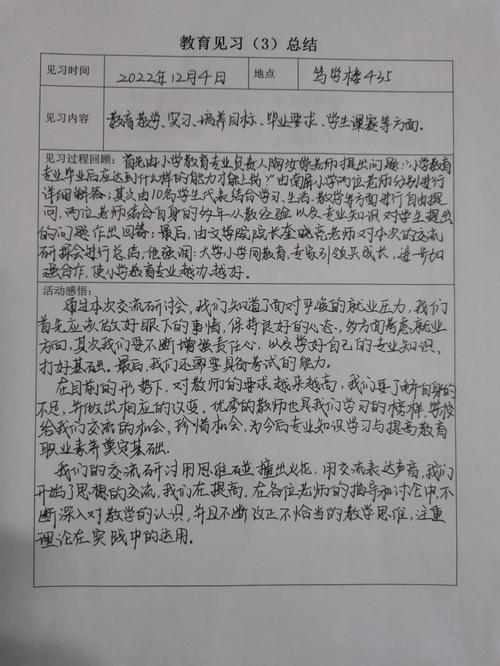 教育见习（3）总结
见习时间 2022年12月4日 地点 笃学楼435
见习内容 教育教学、实习、培养目标、毕业要求、学生课赛等方面。
见习过程回顾：首先由小学教育专业负责人陶汝学老师提出问题："小学教育
专业毕业后应达到什么样的能力才能上岗"由南屏小学两位老师分别进行
详细解答；其次由10名学生代表结合学习、生活、教学等方面进行自由提
问，两位老师结合自身的多年从教经验以及专业知识对学生提出
的问题作出回答；最后，由文学院院长奎晓亮老师对本次的交流
研探会进行总结，他强调：大学小学同教育，专家引领共成长，进一步加
强合作，使小学教育专业越办越好。
活动感悟：
通过本次交流研讨会，我们知道了面对严峻的就业压力，我们
首先应该做好眼下的事情，保持良好的心态，多方面考虑就业
方向，其次我们要不断增强责任心，以及学好自己的专业知识、
打好基础。最后，我们还需要具备考试的能力。
在目前的形势下，对教师的要求越来越高，我们要了解自身的
不足，并做出相应的改变。优秀的教师也是我们学习的榜样，学校
给我们交流的机会，珍惜机会，为今后专业知识学习与提高教育
职业素养奠定基础。
我们的交流研讨用思维碰撞出火花，用交流表达声音，我们
开始了思想的交流，我们在提高。在各位老师的指导和讨论中，不
断深入对教学的认识，并且不断改正不恰当的教学思维，注重
理论在实践中的运用。